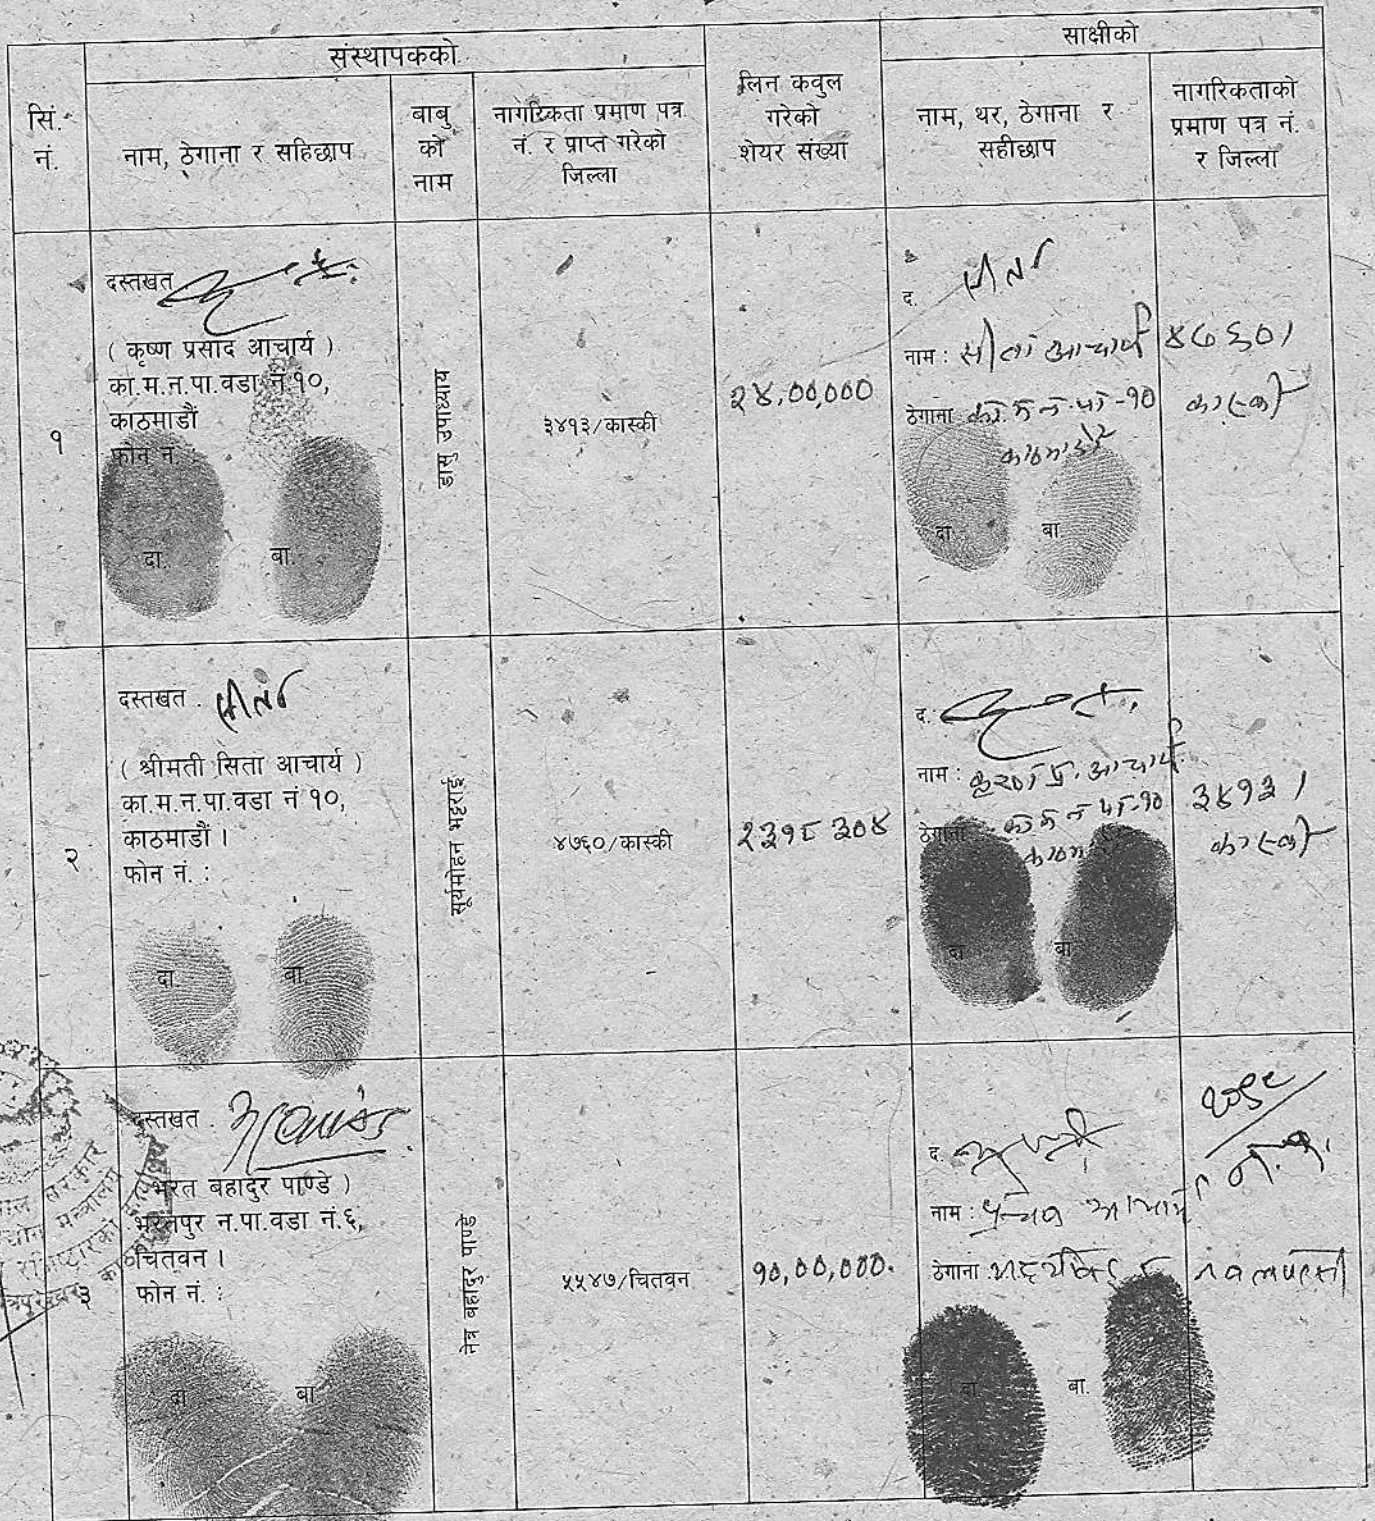 संस्थापकको
साक्षीको
सिं. नं.
नाम, ठेगाना र सहिछाप
बाबु को नाम
नागरिकता प्रमाण पत्र नं. र प्राप्त गरेको जिल्ला
लिन कवुल गरेको शेयर संख्या
नाम, थर, ठेगाना र सहीछाप
नागरिकताको प्रमाण पत्र नं. र जिल्ला
१
दस्तखत
( कृष्ण प्रसाद आचार्य )
का.म.न.पा.वडा नं.१०,
काठमाडौं
फोन नं. :
दा. बा.
डासु उपाध्याय
३४१३/कास्की
२४,००,०००
द. सीता
नाम : सीता आचार्य
ठेगाना का.म.न.पा-१०
काठमाडौं
दा. बा.
४७६०/
कास्की
२
दस्तखत . सीता
( श्रीमती सिता आचार्य )
का.म.न.पा.वडा नं १०,
काठमाडौं ।
फोन नं. :
दा. बा.
सूर्यमोहन भट्टराई
४७६०/कास्की
२३१८३०४
द.
नाम : कृष्ण प्र. आचार्य
ठेगाना का.म.न.पा-१०
दा. बा.
३४१३/
कास्की
३
दस्तखत .
( भरत बहादुर पाण्डे )
भरतपुर न.पा.वडा नं.६,
चितवन ।
फोन नं. :
दा. बा.
नेत्र बहादुर पाण्डे
५५४७/चितवन
१०,००,०००.
द.
नाम :
ठेगाना
दा. बा.
नवलपरासी